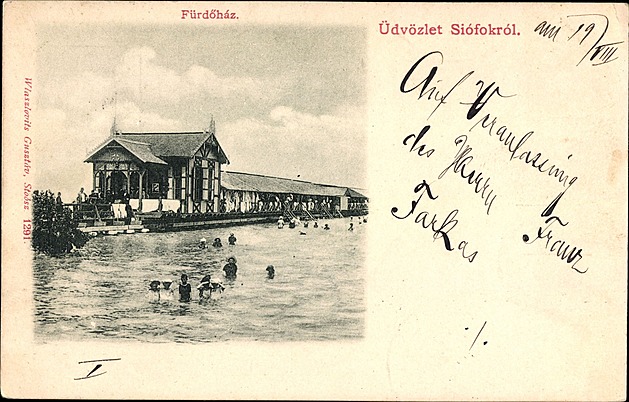 Fürdőház.
Üdvözlet Siófokról.
am 19/VIII
Auf Veranlassung
des Herrn Franz
Farkas
./.
I
Wiaszlovits Gusztáv, Siófok 1291.